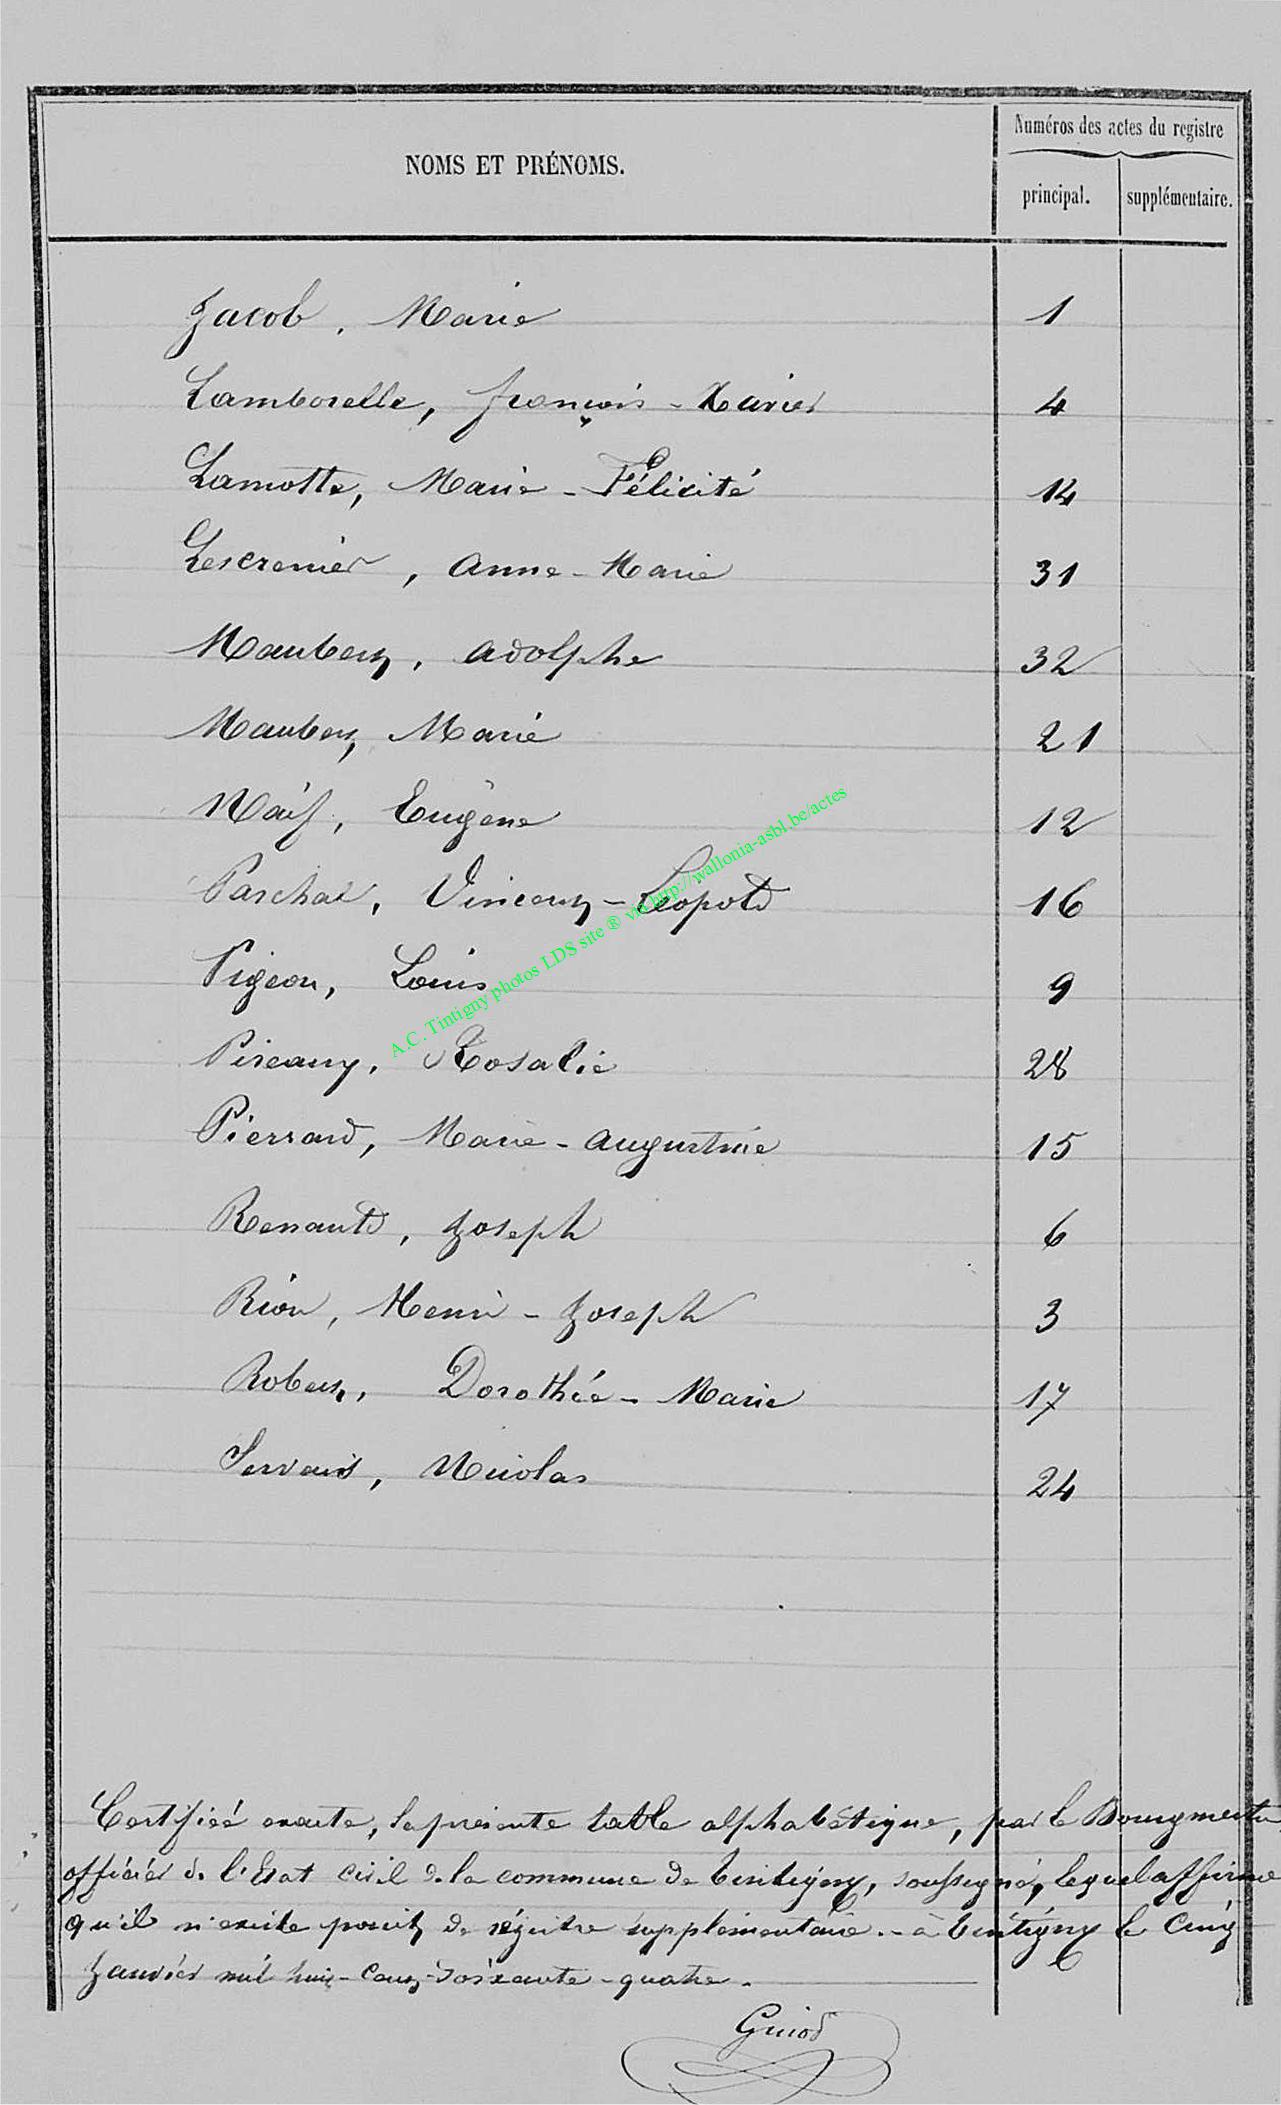 NOMS ET PRÉNOMS.
Numéros des actes du registre
principal.
supplémentaire.
Jacob, Marie 1
Lamborelle, françois-Xavier 4
Lamotte, Marie-Félicité 14
Lescrenier, Anne-Marie 31
Maubert, Adolphe 32
Maubert, Marie 21
Naif, Eugène 12
Paschal, Vincent-Léopold 16
Pigeon, Louis 9
Rosalie 28
Pierrard, Marie-Augustine 15
Renauld, Joseph 6
Rion, Henri-Joseph 3
Robert, Dorothée-Marie 17
Servais, Nicolas 24
A.C. Tintigny photos LDS site ® via http://wallonia-asbl.be/actes
Certifiée exacte, la présente table alphabétique, par le Bourgmestre
officier de l'Etat civil de la commune de Tintigny, soussigné, lequel affirme
qu'il n'existe point de régistre supplémentaire. - à Tintigny le Cinq
Janvier mil huit-Cent-soixante-quatre.
Guiod